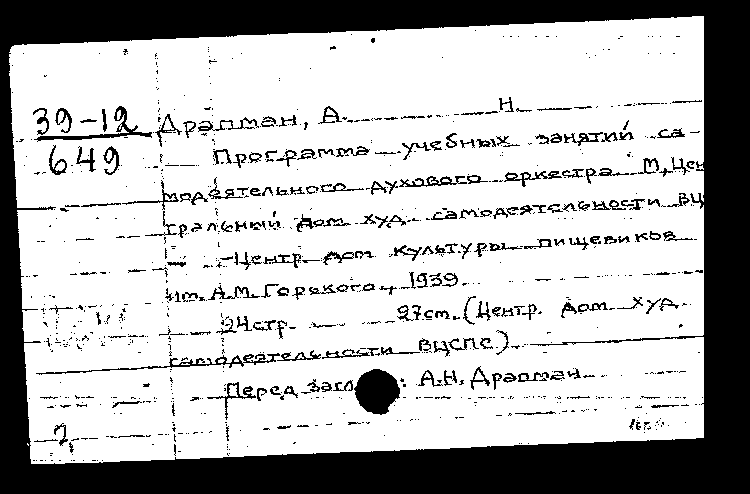 39-12
649
Драпман, А. Н.
Программа учебных занятий са-
модеятельного духового оркестра М, Цен
тральный дом худ. самодеятельности ВЦ
- Центр. дом культуры пищевиков
им. А.М. Горького, 1939.
24стр. 27cm. (Центр. дом худ.
самодеятельности ВЦСПС)
Перед загл : А.Н. Драпман